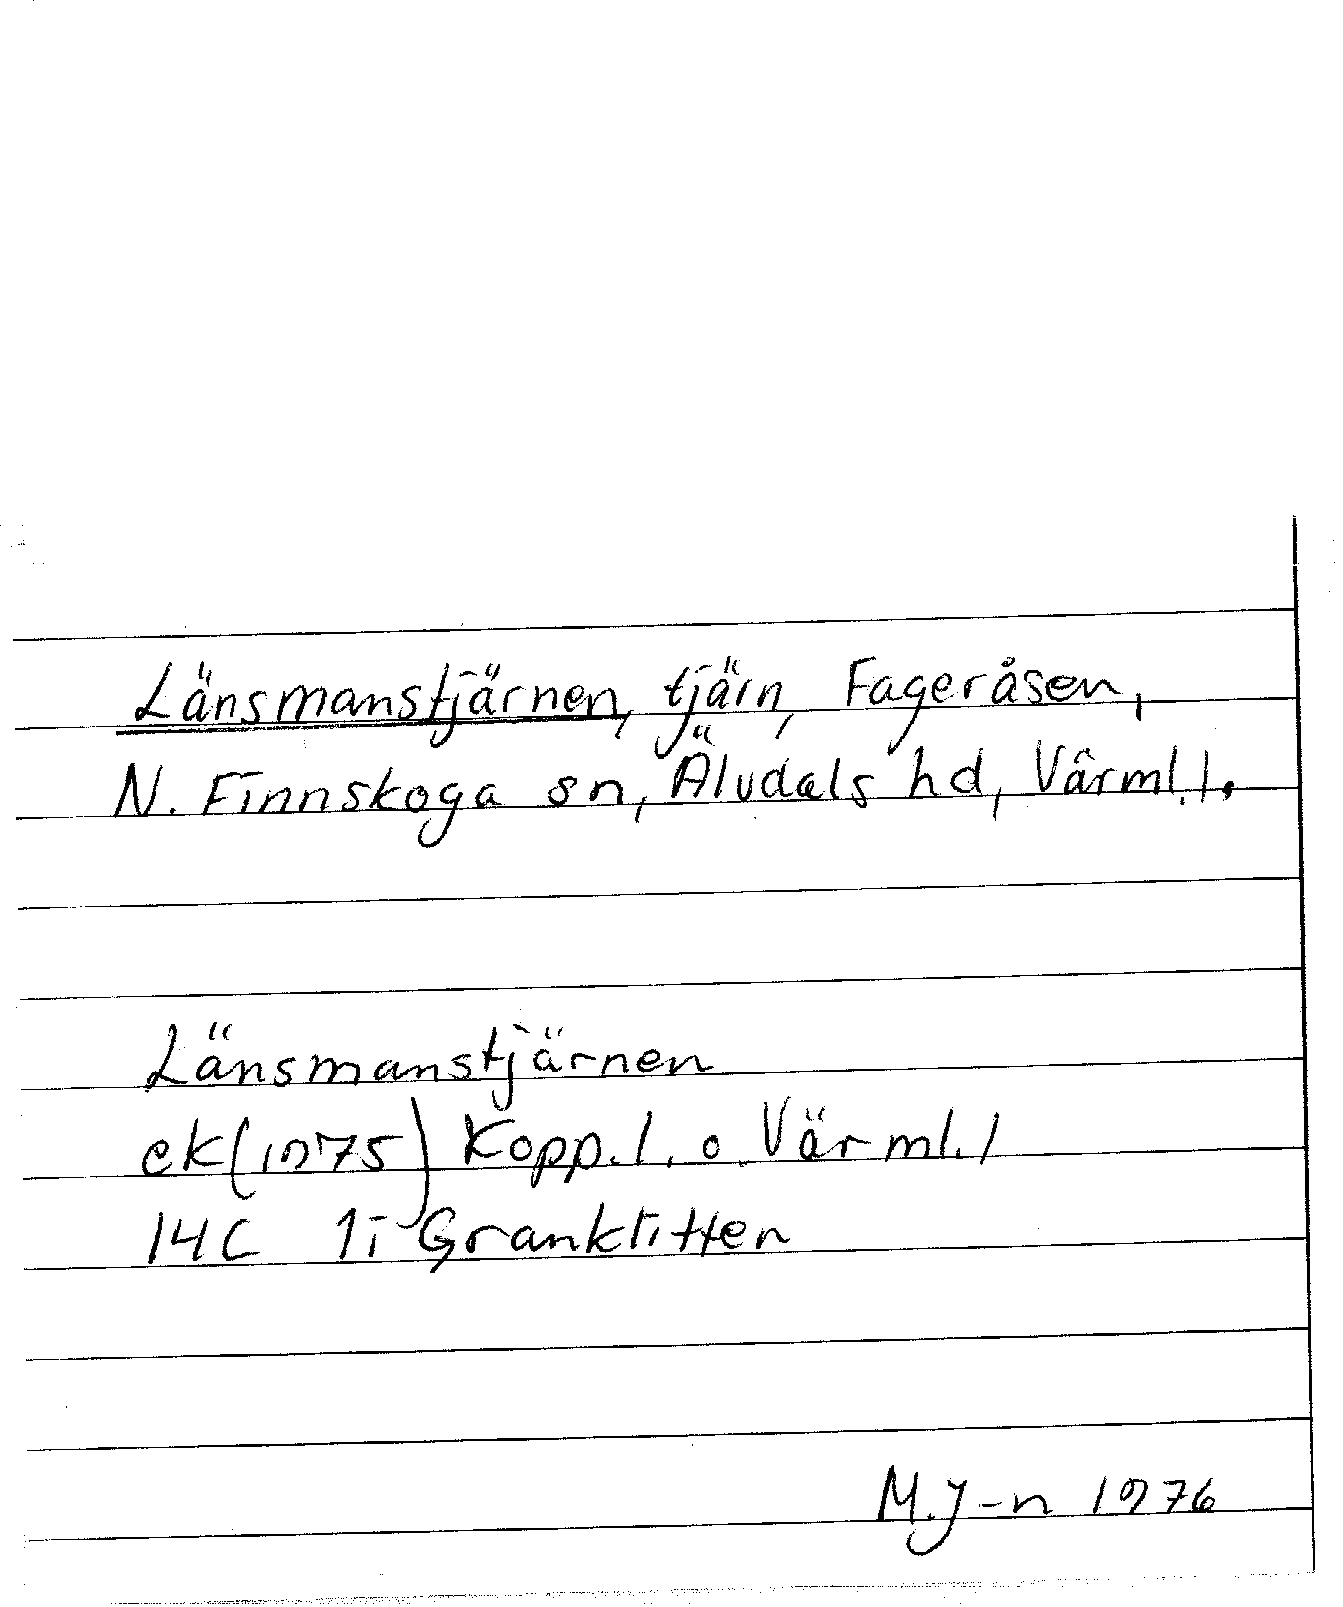 Länsmanstjärnen, tjärn, Fageråsen,
N. Finnskoga sn, Älvdals hd, Värml.l.
Länsmanstjärnen
ek (1975) Kopp.l. o. Värml.l
14C 1i Granklitten
M.J-n 1976